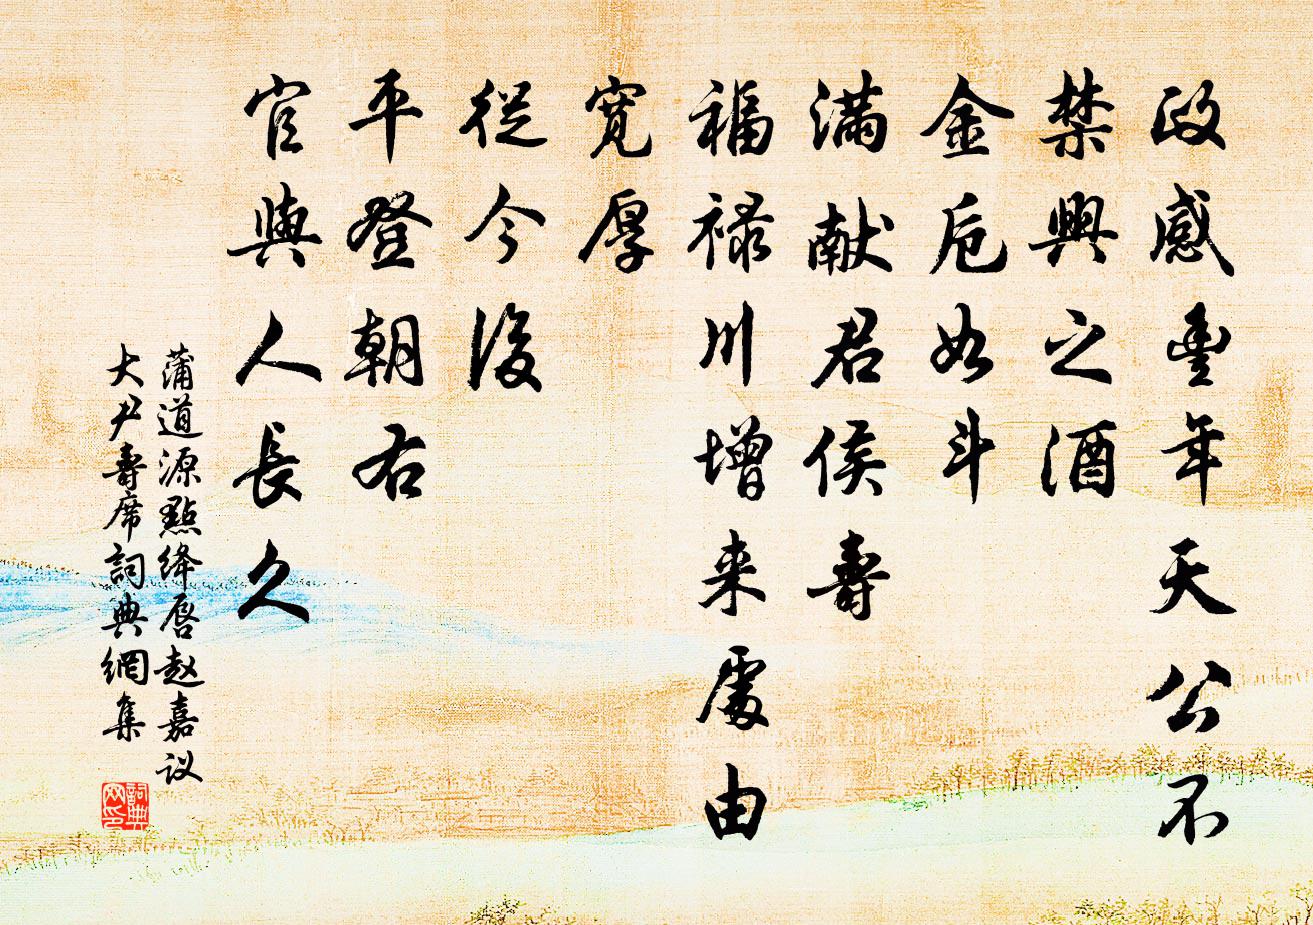 政感豊年天公不
禁興之酒
金巵如斗
满献君侯壽
福禄川增来處由
寛厚
從今後
平登朝右
官與人長久
蒲道源點絳唇赵嘉议
大尹壽席詞典網集
詞典
网印